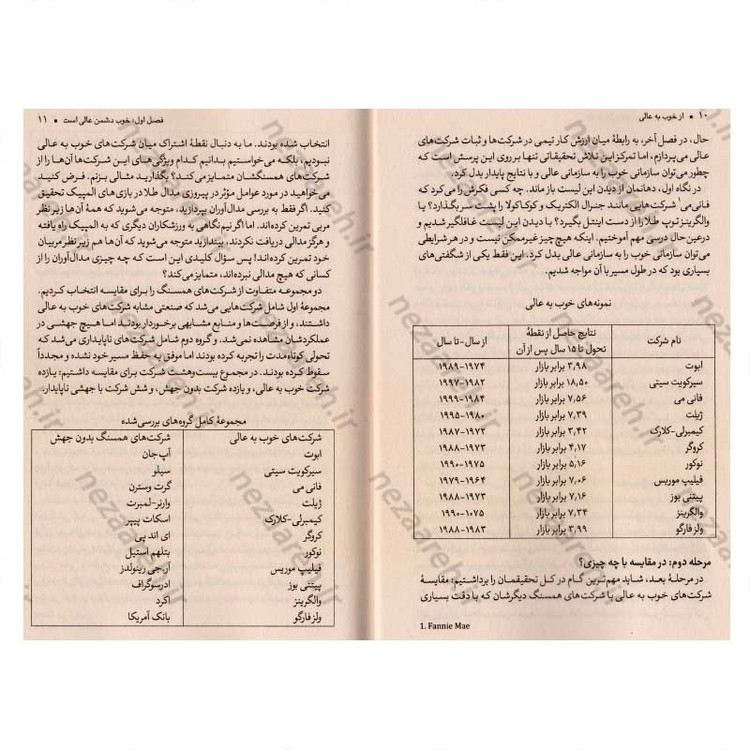 ۱۰ • از خوب به عالی
حال، در فصل آخر، به رابطهٔ میان ارزش کار تیمی در شرکت‌ها و ثبات شرکت‌های
عالی می‌پردازم، اما تمرکز این تلاش تحقیقاتی تنها بر روی این پرسش است که
چطور می‌توان سازمانی خوب را به سازمانی عالی و با نتایج پایدار بدل کرد.
در نگاه اول، دهانمان از دیدن این لیست باز ماند. چه کسی فکرش را می‌کرد که
فانی می۱ شرکت‌هایی مانند جنرال الکتریک و کوکاکولا را پشت سر بگذارد؟ یا
والگرینز توپ طلا را از دست اینتل بگیرد؟ با دیدن این لیست غافلگیر شدیم و
درعین‌حال درسی مهم آموختیم. اینکه هیچ چیز غیرممکن نیست و در هر شرایطی
می‌توان سازمانی خوب را به سازمانی عالی بدل کرد. این فقط یکی از شگفتی‌های
بسیاری بود که در طول مسیر با آن مواجه شدیم.
نمونه‌های خوب به عالی
نام شرکت نتایج حاصل از نقطهٔ تحول تا ۱۵ سال پس از آن از سال-تا سال
ابوت ۳,۹۸ برابر بازار ۱۹۷۴-۱۹۸۹
سیرکویت سیتی ۱۸,۵۰ برابر بازار ۱۹۸۲-۱۹۹۷
فانی می ۷,۵۶ برابر بازار ۱۹۸۴-۱۹۹۹
ژیلت ۷,۳۹ برابر بازار ۱۹۸۰-۱۹۹۵
کیمبرلی-کلارک ۳,۴۲ برابر بازار ۱۹۷۲-۱۹۸۷
کروگر ۴,۱۷ برابر بازار ۱۹۷۳-۱۹۸۸
نوکور ۵,۱۶ برابر بازار ۱۹۷۵-۱۹۹۰
فیلیپ موریس ۷,۰۶ برابر بازار ۱۹۶۴-۱۹۷۹
پیتنی بوز ۷,۱۶ برابر بازار ۱۹۷۳-۱۹۸۸
والگرینز ۷,۳۴ برابر بازار ۱۰۷۵-۱۹۹۰
ولز فارگو ۳,۹۹ برابر بازار ۱۹۸۳-۱۹۸۸
مرحله دوم: در مقایسه با چه چیزی؟
در مرحلهٔ بعد، شاید مهم‌ترین گام در کل تحقیقمان را برداشتیم: مقایسهٔ
شرکت‌های خوب به عالی با شرکت‌های همسنگ دیگرشان که با دقت بسیاری
1. Fannie Mae
فصل اول: خوب دشمن عالی است • ۱۱
انتخاب شده بودند. ما به دنبال نقطهٔ اشتراک میان شرکت‌های خوب به عالی
نبودیم، بلکه می‌خواستیم بدانیم کدام ویژگی‌های این شرکت‌ها آن‌ها را از
شرکت‌های همسنگشان متمایز می‌کند؟ بگذارید مثالی بزنم. فرض کنید
می‌خواهید در مورد عوامل مؤثر در پیروزی مدال طلا در بازی‌های المپیک تحقیق
کنید. اگر فقط به بررسی مدال‌آوران بپردازید، متوجه می‌شوید که همهٔ آن‌ها زیر نظر
مربی تمرین کرده‌اند. اما اگر نیم‌نگاهی به ورزشکاران دیگری که به المپیک راه یافته
و هرگز مدالی دریافت نکردند، بیندازید، متوجه می‌شوید که آن‌ها هم زیر نظر مربیان
خود تمرین کرده‌اند! پس سؤال کلیدی این است که چه چیزی مدال‌آوران را از
کسانی که هیچ مدالی نبرده‌اند، متمایز می‌کند؟
دو مجموعه متفاوت از شرکت‌های همسنگ را برای مقایسه انتخاب کردیم.
مجموعهٔ اول شامل شرکت‌هایی می‌شد که صنعتی مشابه شرکت‌های خوب به عالی
داشتند، و از فرصت‌ها و منابع مشابهی برخوردار بودند اما هیچ جهشی در
عملکردشان مشاهده نمی‌شد. و گروه دوم شامل شرکت‌های ناپایداری می‌شد که
تحولی کوتاه‌مدت را تجربه کرده بودند اما موفق به حفظ مسیر خود نشده و مجدداً
سقوط کرده بودند. در مجموع بیست‌وهشت شرکت برای مقایسه داشتیم: یازده
شرکت خوب به عالی، و یازده شرکت بدون جهش، و شش شرکت با جهشی ناپایدار.
مجموعهٔ کامل گروه‌های بررسی‌شده
شرکت‌های خوب به عالی شرکت‌های همسنگ بدون جهش
ابوت آپ‌جان
سیرکویت سیتی سیلو
فانی می گرت وسترن
ژیلت وارنر-لمبرت
کیمبرلی-کلارک اسکات پیپر
کروگر ای اند پی
نوکور بتلهم استیل
فیلیپ موریس آر.جی رینولدز
پیتنی بوز ادرسوگراف
والگرینز اکرد
ولز فارگو بانک آمریکا
nezaareh.ir